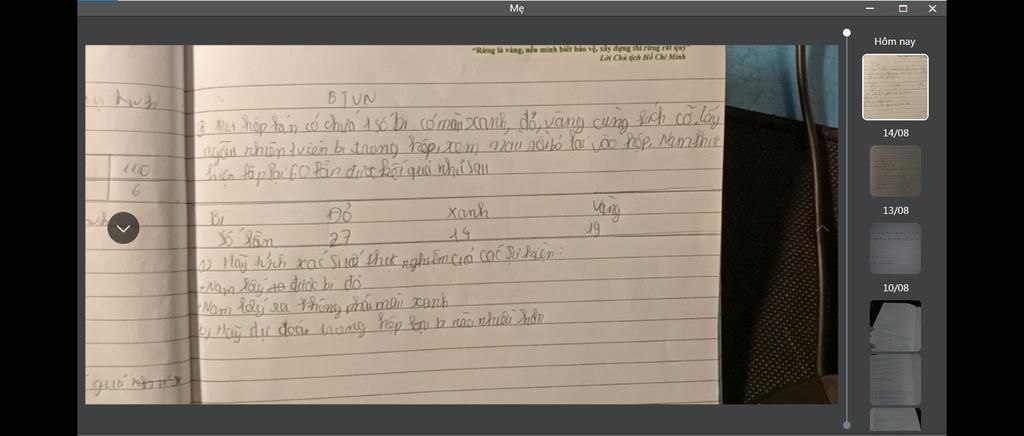 Mẹ
Hôm nay
14/08
13/08
10/08
"Rừng là vàng, nếu mình biết bảo vệ, xây dựng thì rừng rất quý"
Lời Chủ tịch Hồ Chí Minh
BTVN
hộp kín có chứa 1 số bi có màu xanh, đỏ, vàng cùng kích cỡ. Lấy
ngẫu nhiên 1 viên bi trong hộp, xem màu rồi bỏ lại vào hộp. Nam thực
hiện lặp lại 60 lần được kết quả như sau
Bi Đỏ xanh vàng
Số lần 27 14 19
a) Hãy tính xác suất thực nghiệm của các sự kiện:
+Nam lấy được bi đỏ
+Nam lấy ra không phải màu xanh
b) Hãy dự đoán trong hộp loại bi nào nhiều hơn
110
6
quả